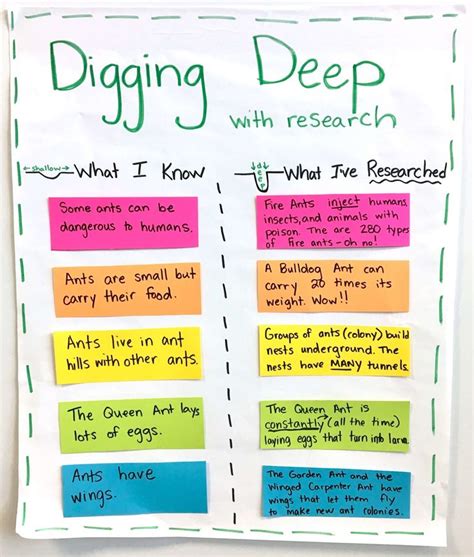 Digging Deep
with research
shallow
What I Know
Some ants can be
dangerous to humans.
Ants are small but
carry their food.
Ants live in ant
hills with other ants.
The Queen Ant lays
lots of eggs.
Ants have
wings.
deep
What I've Researched
Fire Ants inject humans,
insects, and animals with
poison. The are 280 types
of fire ants - oh no!
A Bulldog Ant can
carry 20 times its
weight. Wow!!
Groups of ants (colony) build
nests underground. The
nests have MANY tunnels.
The Queen Ant is
constantly (all the time)
laying eggs that turn into larva.
The Garden Ant and the
Winged Carpenter Ant have
wings that let them fly
to make new ant colonies.